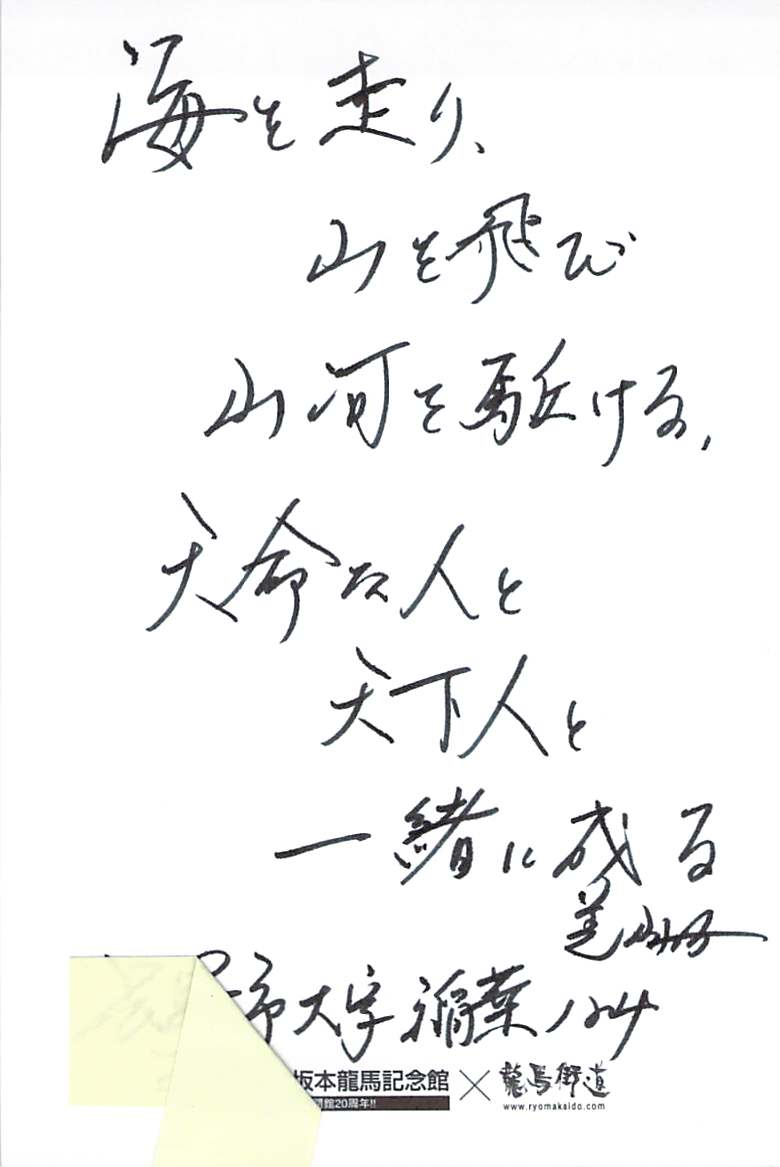 海を走り、
山を飛び
山河を駈ける、
天命な人と
天下人と
一緒に成る
市大字稲葉124
坂本龍馬記念館 × 龍馬街道
開館20周年!!
www.ryomakaido.com